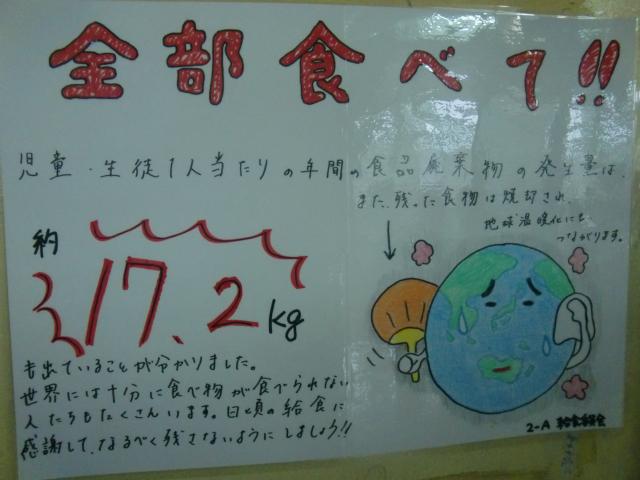 全部食べて!!
児童・生徒1人当たりの年間の食品廃棄物の発生量は、
約
17.2kg
も出ていることが分かりました。
世界には十分に食べ物が食べられない
人たちもたくさんいます。日頃の給食に
感謝して、なるべく残さないようにしましょう!!
また、残った食物は焼却され、
地球温暖化にも
つながります。
2-A 給食委員会